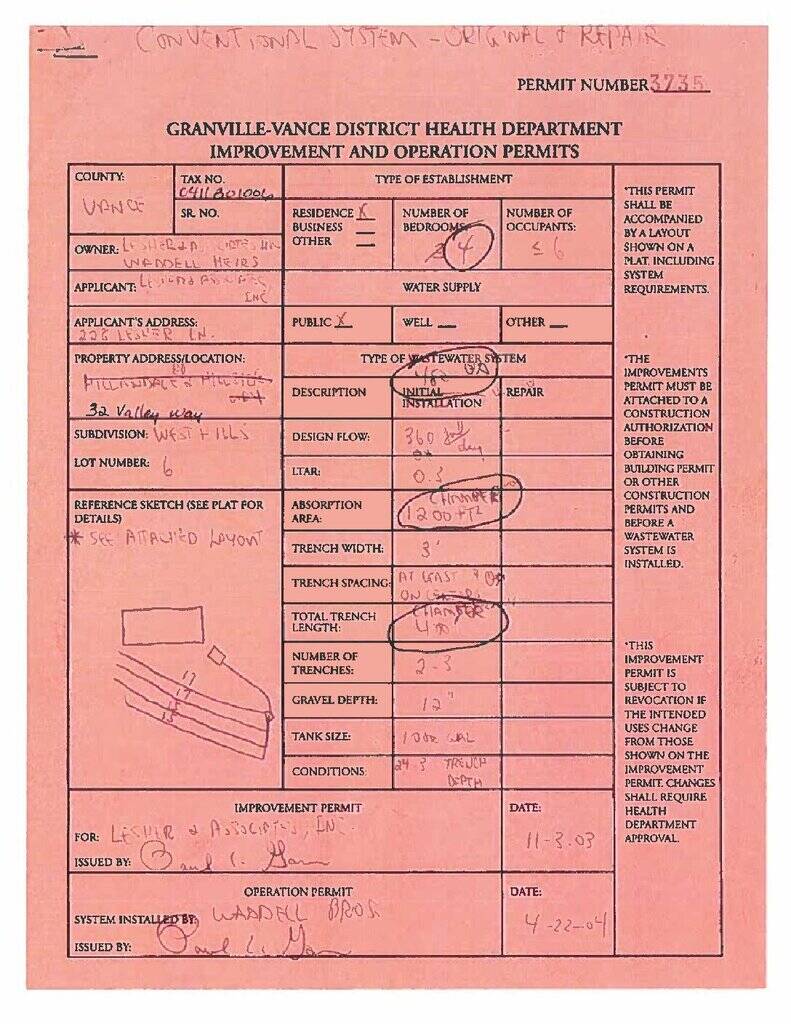 CONVENTIONAL SYSTEM - ORIGINAL & REPAIR
PERMIT NUMBER 3735
GRANVILLE-VANCE DISTRICT HEALTH DEPARTMENT
IMPROVEMENT AND OPERATION PERMITS
COUNTY:
VANCE
TAX NO.
0411B01006
SR. NO.
TYPE OF ESTABLISHMENT
RESIDENCE X
BUSINESS
OTHER
NUMBER OF
BEDROOMS:
4
NUMBER OF
OCCUPANTS:
≤ 6
OWNER: LESHER &
WADDELL HEIRS
APPLICANT: LESHER
INC
WATER SUPPLY
APPLICANT'S ADDRESS:
228 LESHER LN.
PUBLIC X
WELL
OTHER
PROPERTY ADDRESS/LOCATION:
HILLANDALE & HILLSIDE
32 Valley Way
TYPE OF WASTEWATER SYSTEM
480
DESCRIPTION
INITIAL
INSTALLATION
REPAIR
SUBDIVISION: WEST HILLS
DESIGN FLOW:
360 gal/day
LOT NUMBER: 6
LTAR:
0.3
REFERENCE SKETCH (SEE PLAT FOR
DETAILS)
* SEE ATTACHED LAYOUT
17
17
15
15
ABSORPTION
AREA:
CHAMBER
1200 FT²
TRENCH WIDTH:
3'
TRENCH SPACING:
AT LEAST 9
ON CENTERS
TOTAL TRENCH
LENGTH:
CHAMBER
NUMBER OF
TRENCHES:
2-3
GRAVEL DEPTH:
12"
TANK SIZE:
1000 GAL
CONDITIONS:
TRENCH
DEPTH
*THIS PERMIT
SHALL BE
ACCOMPANIED
BY A LAYOUT
SHOWN ON A
PLAT, INCLUDING
SYSTEM
REQUIREMENTS.
*THE
IMPROVEMENTS
PERMIT MUST BE
ATTACHED TO A
CONSTRUCTION
AUTHORIZATION
BEFORE
OBTAINING
BUILDING PERMIT
OR OTHER
CONSTRUCTION
PERMITS AND
BEFORE A
WASTEWATER
SYSTEM IS
INSTALLED.
*THIS
IMPROVEMENT
PERMIT IS
SUBJECT TO
REVOCATION IF
THE INTENDED
USES CHANGE
FROM THOSE
SHOWN ON THE
IMPROVEMENT
PERMIT. CHANGES
SHALL REQUIRE
HEALTH
DEPARTMENT
APPROVAL.
IMPROVEMENT PERMIT
FOR: LESHER & ASSOCIATES, INC.
ISSUED BY:
DATE:
11-3-03
OPERATION PERMIT
SYSTEM INSTALLED BY: WADDELL BROS.
ISSUED BY:
DATE:
4-22-04